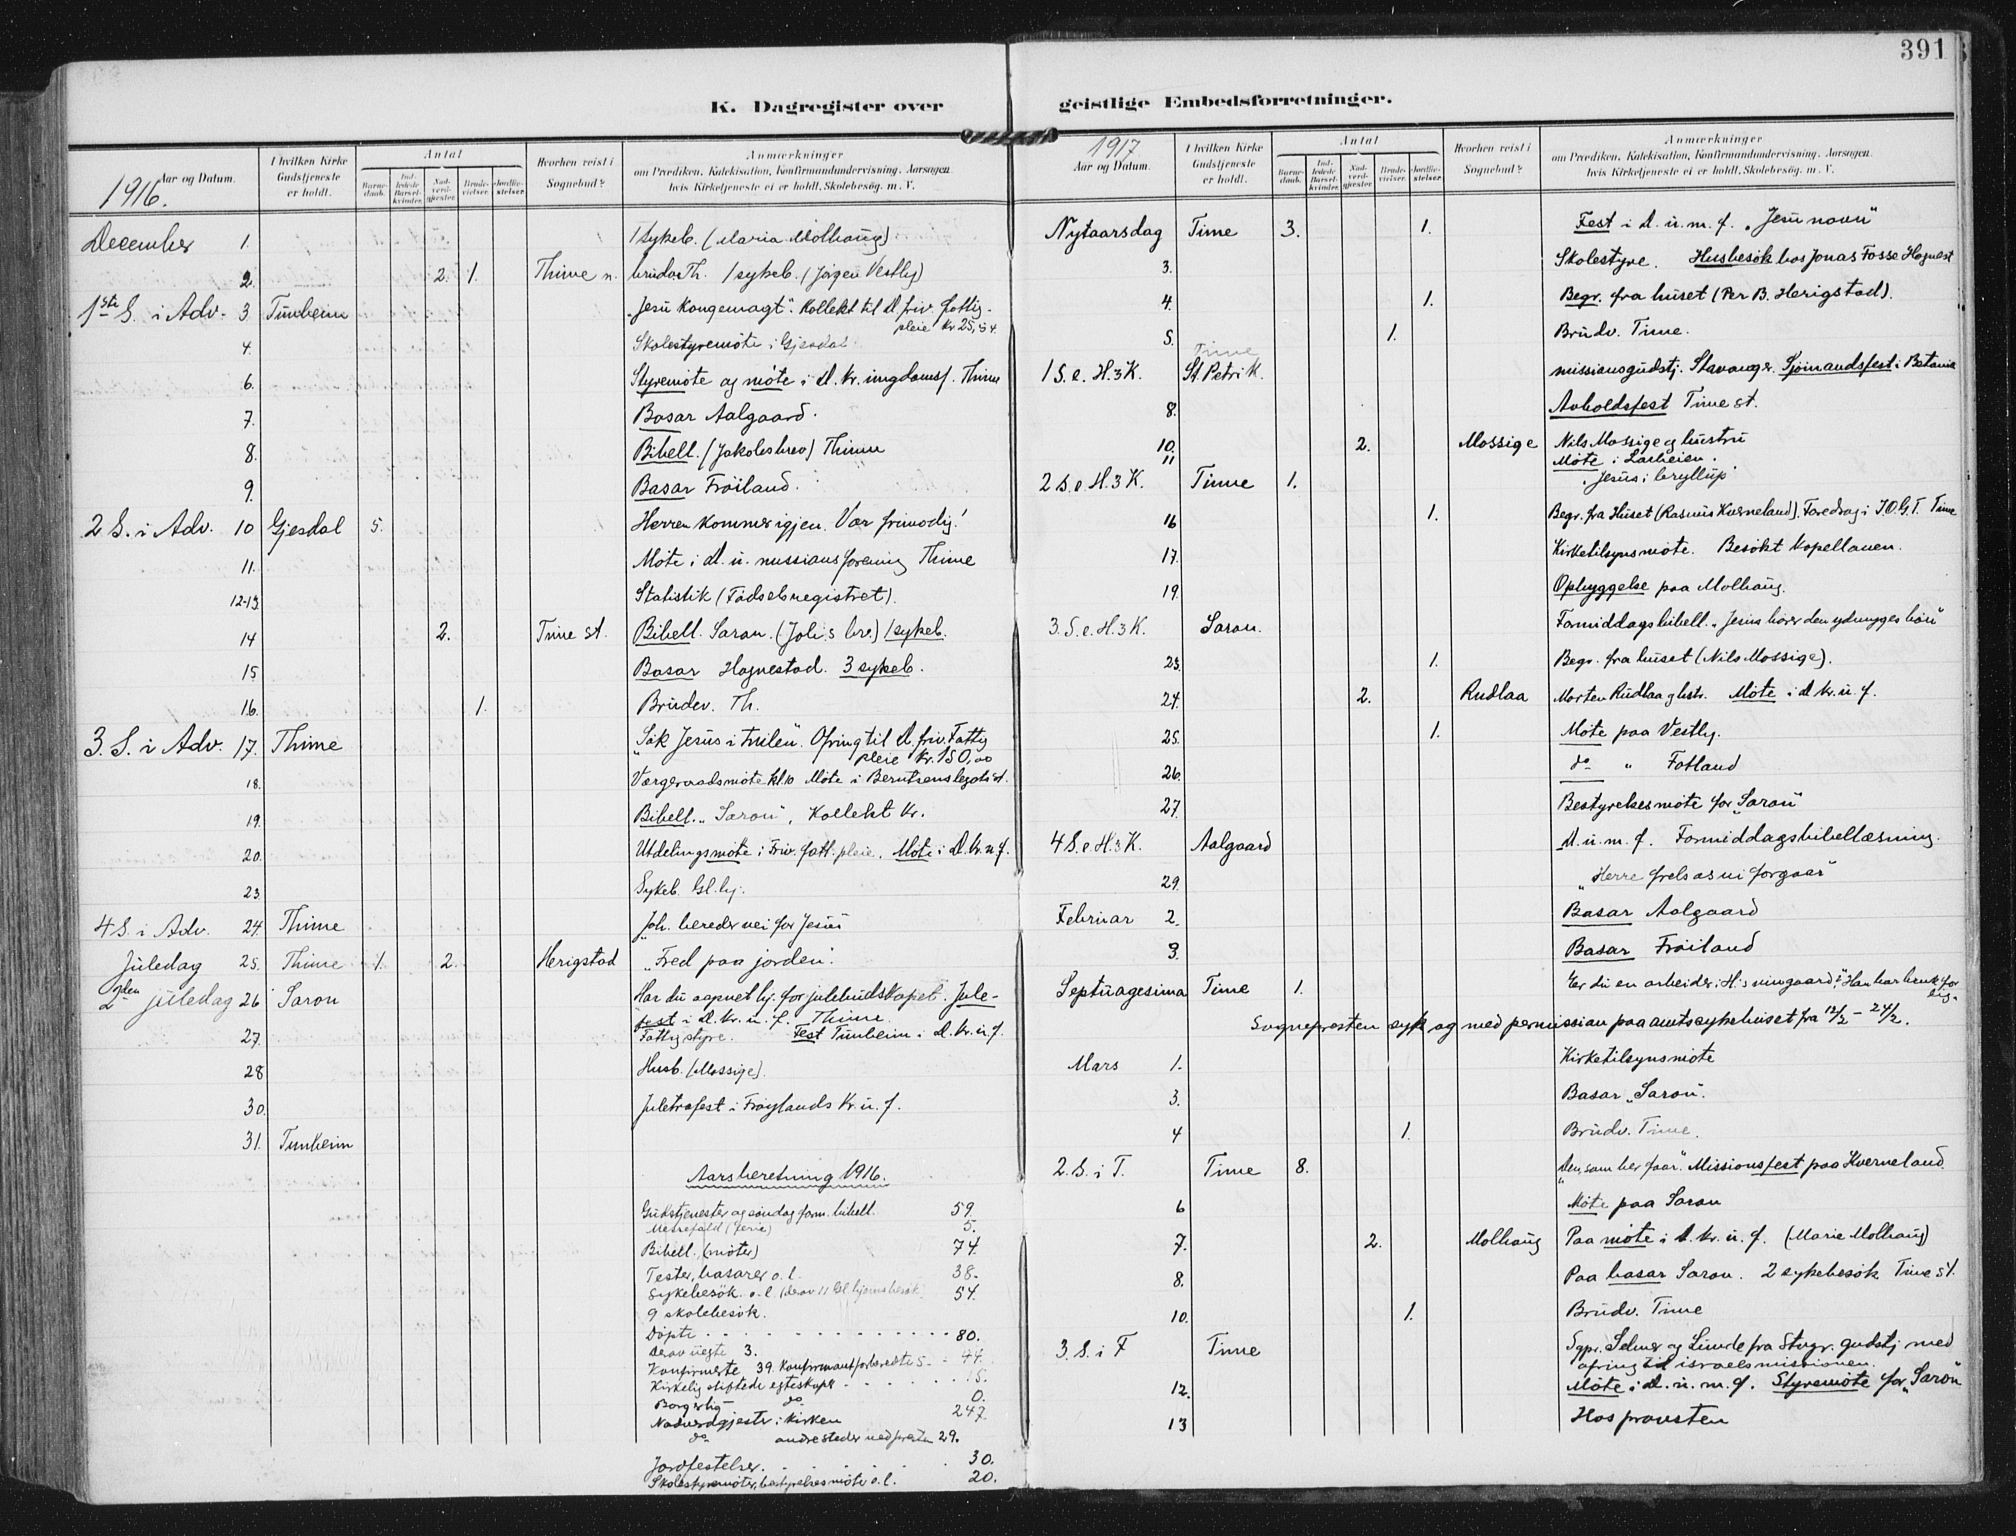 391
K. Dagregister over
1916.
Aar og Datum.
I hvilken Kirke Gudstjeneste er holdt.
Antal
Barne-daab.
Ind-ledede Barsel-kvinder.
Nad-verd-gjester.
Brude-vielser.
Jordfæ-stelser.
Hvorhen reist i Sognebud?
Anmærkninger
om Prædiken, Katekisation, Konfirmandundervisning, Aarsagen
hvis Kirketjeneste ei er holdt, Skolebesøg. m. V.
December 1. 1 sykeb. (Maria Molhaug)
2. 2. 1. Thime n. brudev. Th. 1 sykeb. (Jørgen Vestly)
1ste S. i Adv. 3 Tunheim "Jesu Kongemagt". Kollekt til d. friv. fattig-
pleie Kr 25,54.
4. Skolestyremöte i Gjesdal
6. Styremöte og möte i d. kr. ungdomsf. Thime
7. Basar Aalgaard.
8. Bibell. (Jakobsbrev) Thime
9. Basar Fröiland.
2 S. i Adv. 10 Gjesdal 5. Herren kommer igjen. Vær frimodig!
11. Möte i d. u. missionsforening Thime
12-13. Statistik (Födselsregistret).
14 2. Time st. Bibell. Saron. (Joh:s br.) 1 sykeb.
15 Basar Hognestad. 3 sykeb.
16. 1. Brudev. Th.
3. S. i Adv. 17. Thime "Sök Jesus i tvilen". Ofring til d. friv. Fattig
pleie Kr. 150,00
18. Værgeraadsmöte kl. 10 Möte i Berntsens legats st.
19. Bibell. "Saron", Kollekt Kr.
20. Utdelingsmöte i Friv. fatt. pleie. Möte i d. kr. u. f.
23. Sykeb. Gl. hj.
4 S. i Adv. 24. Thime "Joh. bereder vei for Jesus
Juledag 25. Thime 1. 2. Herigstad "Fred paa jorden".
2den juledag 26 Saron Har du aapnet hj. for julebudskapet. Jule-
fest i d. kr. u. f. Thime.
27. Fattigstyre. Fest Tunheim i d. kr. u. f.
28 Husb. (Mossige).
30. Juletrefest i Fröylands kr. u. f.
31. Tunheim
Aarsberetning 1916.
Gudstjenester og söndag form. bibell. 59
5.
Bibell. (möter) 74.
Fester, basarer o. l. 38.
Sykebesök o. l. (derav 11 Gl. hjemsbesök 54.
9 skolebesök.
Döpte 80.
Derav uegte 3.
Konfirmerte 39. Konfirmantforberedte 5 44.
Kirkelig stiftede egteskaper 15.
Borgerlig do 0.
Nadverdgjester i kirken 247.
do andre steder ved presten 29.
Jordfestelser 30.
Skolestyremöter, bestyrelsesmöte o. l. 20.
geistlige Embedsforretninger.
1917
Aar og Datum.
I hvilken Kirke Gudstjeneste er holdt.
Antal
Barne-daab.
Ind-ledede Barsel-kvinder.
Nad-verd-gjester.
Brude-vielser.
Jordfæ-stelser.
Hvorhen reist i Sognebud?
Anmærkninger
om Prædiken, Katekisation, Konfirmandundervisning, Aarsagen,
hvis Kirketjeneste ei er holdt, Skolebesøg. m. V.
Nytaarsdag Time 3. 1. Fest i d. u. m. f. "Jesu navn"
3. Skolestyre. Husbesök hos Jonas Fosse Hognest
4. 1. Begr. fra huset (Per B. Herigstad).
5. 1. Brudv. Time.
Time
1 S. e. H. 3 K. St. Petri K. missionsgudstj. Stavanger. Sjömandsfest i Betania
8. Avholdsfest Time st.
10. 2. Mossige Nils Mossige og hustru
11 Möte i Larheien.
2 S. e. H. 3 K. Time 1. "Jesus i bryllup".
16 1. Begr. fra Huset (Rasmus Kverneland). Foredrag i I.O.G.T. Time
17. Kirketilsynsmöte. Besökt Kapellanen.
19. Opbyggelse paa Molhaug.
3. S. e. H. 3 K. Saron. Formiddagsbibell. "Jesus hörer den ydmyges bön"
23. 1. Begr. fra huset (Nils Mossige).
24. 2. Rudlaa Morten Rudlaa og hstr. Möte i d. kr. u. f.
25. 1. Möte paa Vestly.
26. do " Fotland
27. Bestyrelsesmöte for "Saron"
4 S. e. H. 3 K. Aalgaard D. u. m. f. Formiddagsbibellæsning.
29. "Herre frels os vi forgaar"
Februar 2. Basar Aalgaard
3. Basar Fröiland
Septuagesima Time 1. "Er du en arbeider i H:s vingaard". Han har bruk for
dig.
Sognepresten syk og med permission paa amtssykehuset fra 12/2 - 24/2.
Mars 1. Kirketilsynsmöte
3. Basar "Saron".
4 1. Brudv. Time.
2. S. i F. Time 8. "Den, som ber faar". Missionsfest paa Kverneland.
6 Möte paa Saron
7. 2. Molhaug Paa möte i d. kr. u. f. (Marie Molhaug)
8. Paa basar Saron. 2 sykebesök Time st.
10. 1. Brudv. Time
3. S. i F Time Sgpr. Selmer og Lunde fra Stvgr. gudstj med
ofring til israelsmissionen.
12. Möte i d. u. m. f. Styremöte for "Saron"
13 Hos provsten